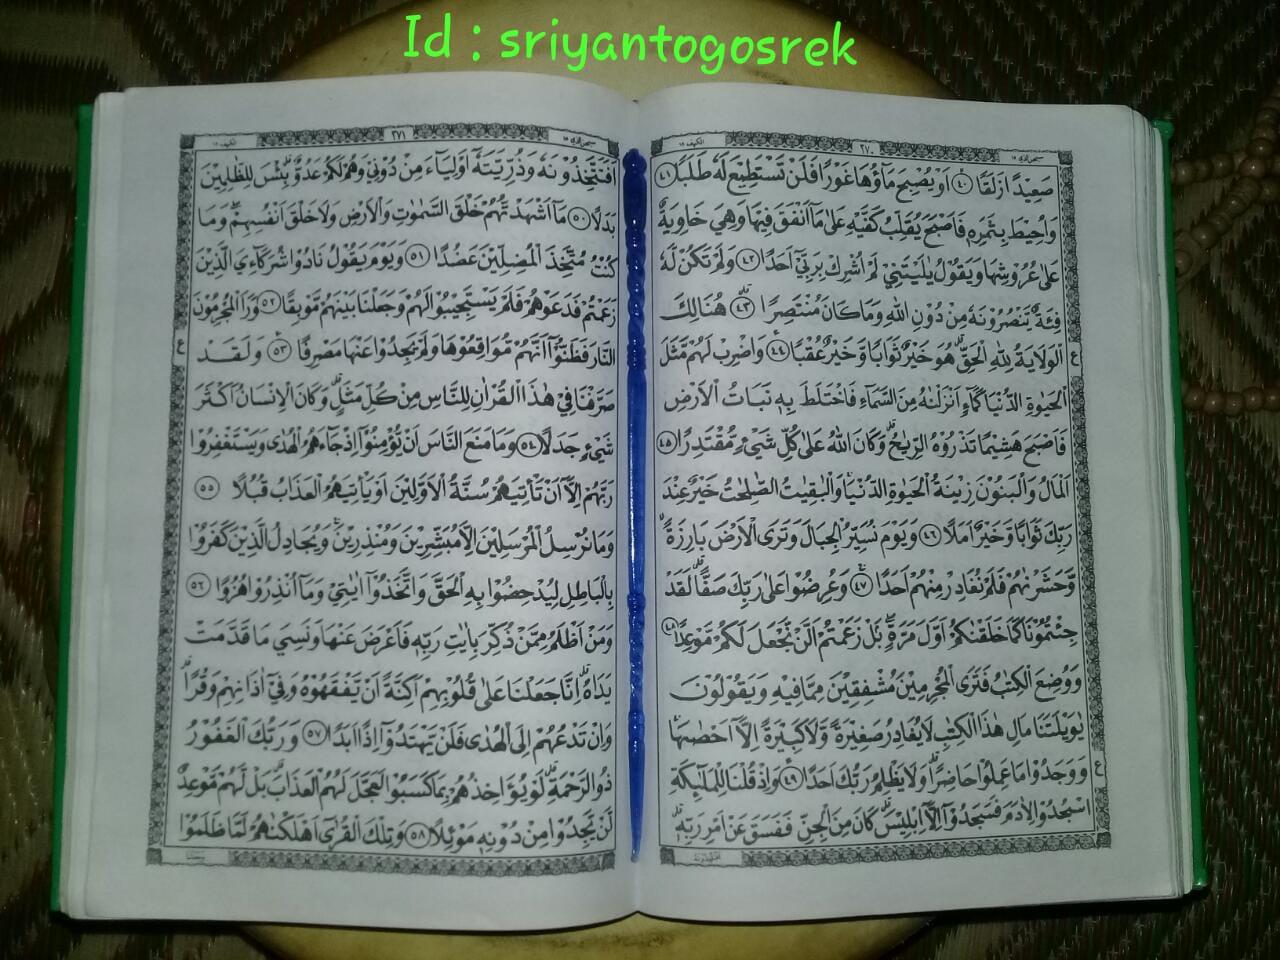 Id : sriyantogosrek
الكهف ١٨
٢٧٠
سبحن الذي ١٥
صَعِيْدًا زَلَقًا ٤٠ اَوْ يُصْبِحَ مَاۤؤُهَا غَوْرًا فَلَنْ تَسْتَطِيْعَ لَهٗ طَلَبًا ٤١
وَاُحِيْطَ بِثَمَرِهٖ فَاَصْبَحَ يُقَلِّبُ كَفَّيْهِ عَلٰى مَاۤ اَنْفَقَ فِيْهَا وَهِيَ خَاوِيَةٌ
عَلٰى عُرُوْشِهَا وَيَقُوْلُ يٰلَيْتَنِيْ لَمْ اُشْرِكْ بِرَبِّيْۤ اَحَدًا ٤٢ وَلَمْ تَكُنْ لَّهٗ
فِئَةٌ يَّنْصُرُوْنَهٗ مِنْ دُوْنِ اللّٰهِ وَمَا كَانَ مُنْتَصِرًا ٤٣ هُنَالِكَ
الْوَلَايَةُ لِلّٰهِ الْحَقِّ هُوَ خَيْرٌ ثَوَابًا وَّخَيْرٌ عُقْبًا ٤٤ وَاضْرِبْ لَهُمْ مَّثَلَ
الْحَيٰوةِ الدُّنْيَا كَمَاۤءٍ اَنْزَلْنٰهُ مِنَ السَّمَاۤءِ فَاخْتَلَطَ بِهٖ نَبَاتُ الْاَرْضِ
فَاَصْبَحَ هَشِيْمًا تَذْرُوْهُ الرِّيٰحُ وَكَانَ اللّٰهُ عَلٰى كُلِّ شَيْءٍ مُّقْتَدِرًا ٤٥
اَلْمَالُ وَالْبَنُوْنَ زِيْنَةُ الْحَيٰوةِ الدُّنْيَا وَالْبٰقِيٰتُ الصّٰلِحٰتُ خَيْرٌ عِنْدَ
رَبِّكَ ثَوَابًا وَّخَيْرٌ اَمَلًا ٤٦ وَيَوْمَ نُسَيِّرُ الْجِبَالَ وَتَرَى الْاَرْضَ بَارِزَةً
وَّحَشَرْنٰهُمْ فَلَمْ نُغَادِرْ مِنْهُمْ اَحَدًا ٤٧ وَعُرِضُوْا عَلٰى رَبِّكَ صَفًّا لَقَدْ
جِئْتُمُوْنَا كَمَا خَلَقْنٰكُمْ اَوَّلَ مَرَّةٍ بَلْ زَعَمْتُمْ اَلَّنْ نَّجْعَلَ لَكُمْ مَّوْعِدًا ٤٨
وَوُضِعَ الْكِتٰبُ فَتَرَى الْمُجْرِمِيْنَ مُشْفِقِيْنَ مِمَّا فِيْهِ وَيَقُوْلُوْنَ
يٰوَيْلَتَنَا مَالِ هٰذَا الْكِتٰبِ لَا يُغَادِرُ صَغِيْرَةً وَّلَا كَبِيْرَةً اِلَّاۤ اَحْصٰىهَا
وَوَجَدُوْا مَا عَمِلُوْا حَاضِرًا وَلَا يَظْلِمُ رَبُّكَ اَحَدًا ٤٩ وَاِذْ قُلْنَا لِلْمَلٰۤئِكَةِ
اسْجُدُوْا لِاٰدَمَ فَسَجَدُوْۤا اِلَّاۤ اِبْلِيْسَ كَانَ مِنَ الْجِنِّ فَفَسَقَ عَنْ اَمْرِ رَبِّهٖ
الكهف ١٨
٢٧١
سبحن الذي ١٥
اَفَتَتَّخِذُوْنَهٗ وَذُرِّيَّتَهٗۤ اَوْلِيَاۤءَ مِنْ دُوْنِيْ وَهُمْ لَكُمْ عَدُوٌّ بِئْسَ لِلظّٰلِمِيْنَ
بَدَلًا ٥٠ مَاۤ اَشْهَدْتُّهُمْ خَلْقَ السَّمٰوٰتِ وَالْاَرْضِ وَلَا خَلْقَ اَنْفُسِهِمْ وَمَا
كُنْتُ مُتَّخِذَ الْمُضِلِّيْنَ عَضُدًا ٥١ وَيَوْمَ يَقُوْلُ نَادُوْا شُرَكَاۤءِيَ الَّذِيْنَ
زَعَمْتُمْ فَدَعَوْهُمْ فَلَمْ يَسْتَجِيْبُوْا لَهُمْ وَجَعَلْنَا بَيْنَهُمْ مَّوْبِقًا ٥٢ وَرَاَ الْمُجْرِمُوْنَ
النَّارَ فَظَنُّوْۤا اَنَّهُمْ مُّوَاقِعُوْهَا وَلَمْ يَجِدُوْا عَنْهَا مَصْرِفًا ٥٣ وَلَقَدْ
صَرَّفْنَا فِيْ هٰذَا الْقُرْاٰنِ لِلنَّاسِ مِنْ كُلِّ مَثَلٍ وَكَانَ الْاِنْسَانُ اَكْثَرَ
شَيْءٍ جَدَلًا ٥٤ وَمَا مَنَعَ النَّاسَ اَنْ يُّؤْمِنُوْۤا اِذْ جَاۤءَهُمُ الْهُدٰى وَيَسْتَغْفِرُوْا
رَبَّهُمْ اِلَّاۤ اَنْ تَأْتِيَهُمْ سُنَّةُ الْاَوَّلِيْنَ اَوْ يَأْتِيَهُمُ الْعَذَابُ قُبُلًا ٥٥
وَمَا نُرْسِلُ الْمُرْسَلِيْنَ اِلَّا مُبَشِّرِيْنَ وَمُنْذِرِيْنَ وَيُجَادِلُ الَّذِيْنَ كَفَرُوْا
بِالْبَاطِلِ لِيُدْحِضُوْا بِهِ الْحَقَّ وَاتَّخَذُوْۤا اٰيٰتِيْ وَمَاۤ اُنْذِرُوْا هُزُوًا ٥٦
وَمَنْ اَظْلَمُ مِمَّنْ ذُكِّرَ بِاٰيٰتِ رَبِّهٖ فَاَعْرَضَ عَنْهَا وَنَسِيَ مَا قَدَّمَتْ
يَدٰهُ اِنَّا جَعَلْنَا عَلٰى قُلُوْبِهِمْ اَكِنَّةً اَنْ يَّفْقَهُوْهُ وَفِيْۤ اٰذَانِهِمْ وَقْرًا
وَاِنْ تَدْعُهُمْ اِلَى الْهُدٰى فَلَنْ يَّهْتَدُوْۤا اِذًا اَبَدًا ٥٧ وَرَبُّكَ الْغَفُوْرُ
ذُو الرَّحْمَةِ لَوْ يُؤَاخِذُهُمْ بِمَا كَسَبُوْا لَعَجَّلَ لَهُمُ الْعَذَابَ بَلْ لَّهُمْ مَّوْعِدٌ
لَّنْ يَّجِدُوْا مِنْ دُوْنِهٖ مَوْئِلًا ٥٨ وَتِلْكَ الْقُرٰۤى اَهْلَكْنٰهُمْ لَمَّا ظَلَمُوْا